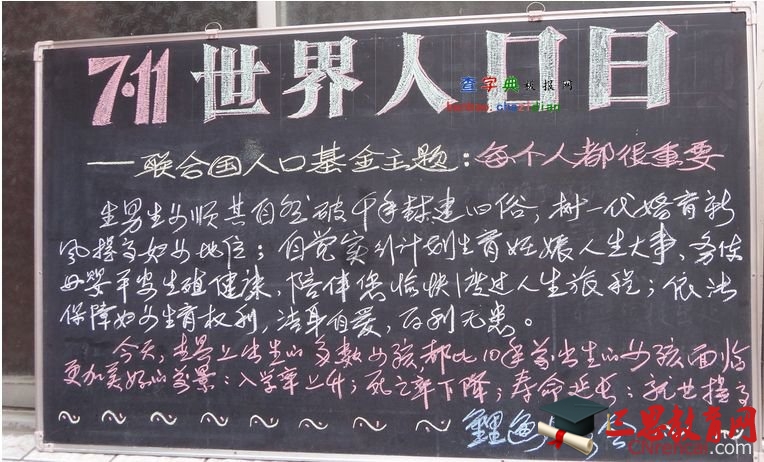 7·11世界人口日
查字典板报网
——联合国人口基金主题：每个人都很重要
生男生女顺其自然破千年封建旧俗，树一代婚育新
风提高妇女地位；自觉实行计划生育妊娠人生大事、务使
母婴平安生殖健康，陪伴您愉快渡过人生旅程；依法
保障妇女生育权利，洁身自爱，百利无患。
今天，世界上出生的多数女孩，都比10年前出生的女孩面临
更加美好的前景：入学率上升；死亡率下降；寿命延长；就业提高
鲤鱼
三男教育网